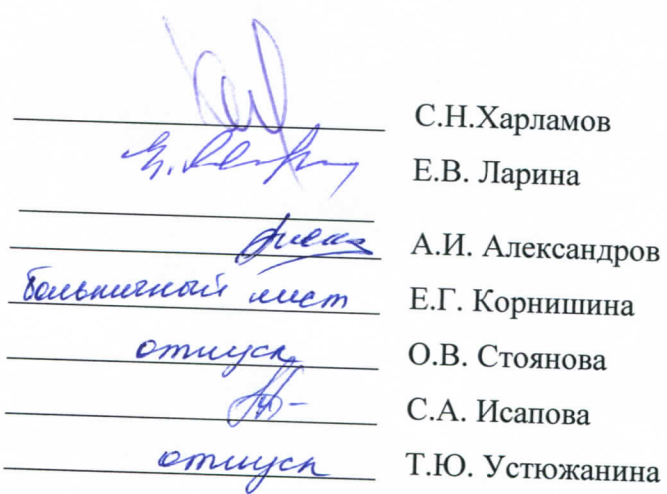 С.Н.Харламов
Е.В. Ларина
А.И. Александров
больничный лист Е.Г. Корнишина
отпуск О.В. Стоянова
С.А. Исапова
отпуск Т.Ю. Устюжанина